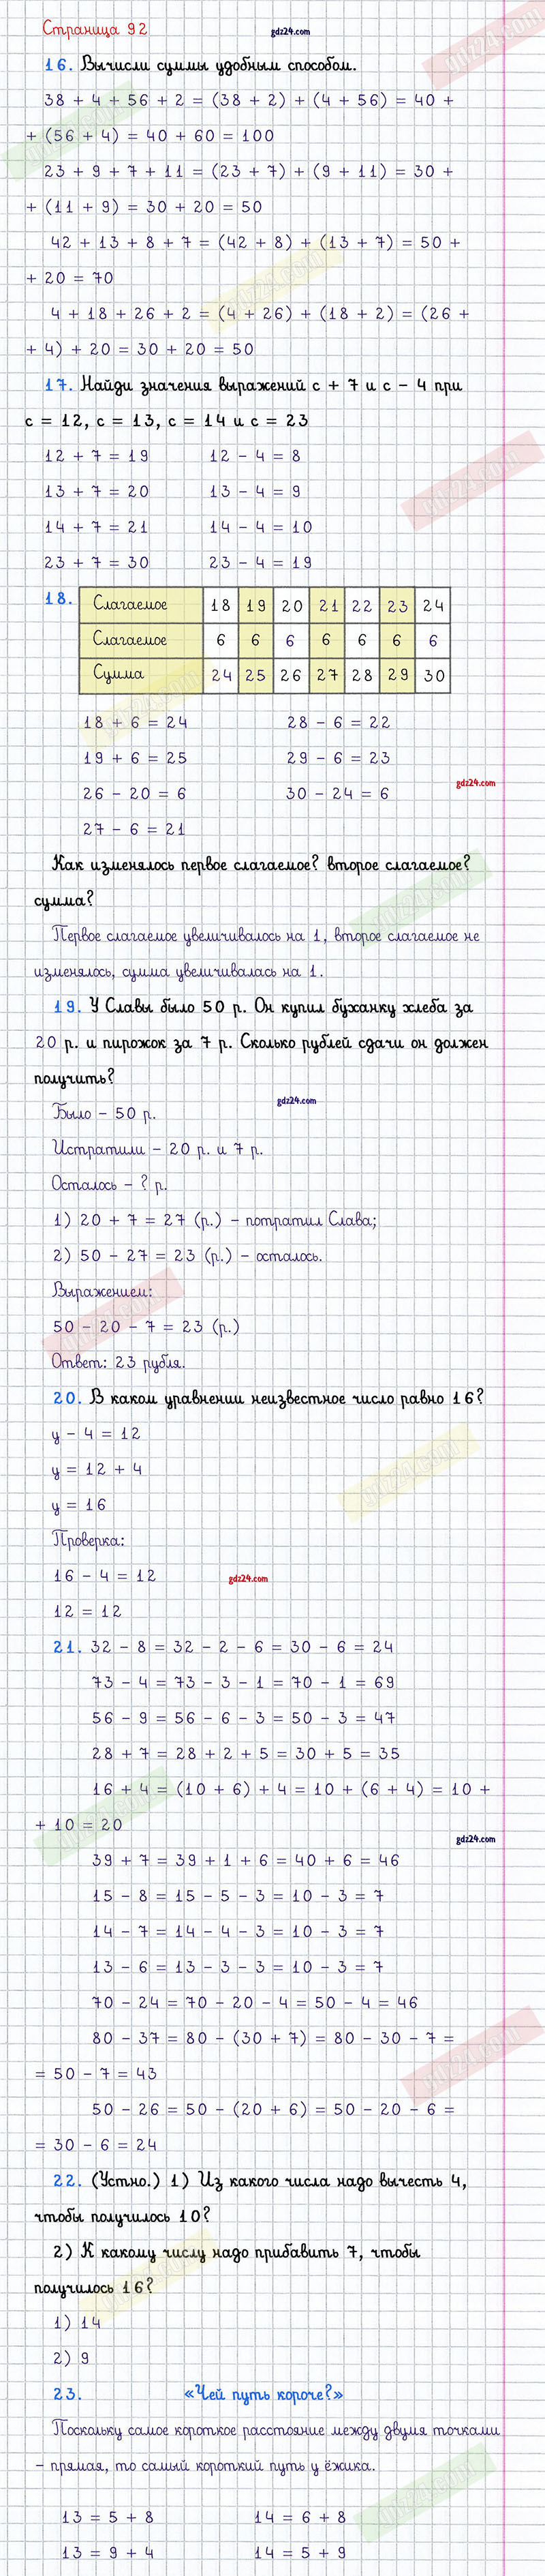 Страница 92
gdz24.com
16. Вычисли суммы удобным способом.
38 + 4 + 56 + 2 = (38 + 2) + (4 + 56) = 40 +
+ (56 + 4) = 40 + 60 = 100
23 + 9 + 7 + 11 = (23 + 7) + (9 + 11) = 30 +
+ (11 + 9) = 30 + 20 = 50
42 + 13 + 8 + 7 = (42 + 8) + (13 + 7) = 50 +
+ 20 = 70
4 + 18 + 26 + 2 = (4 + 26) + (18 + 2) = (26 +
+ 4) + 20 = 30 + 20 = 50
17. Найди значения выражений с + 7 и с – 4 при
с = 12, с = 13, с = 14 и с = 23
12 + 7 = 19 12 – 4 = 8
13 + 7 = 20 13 – 4 = 9
14 + 7 = 21 14 – 4 = 10
23 + 7 = 30 23 – 4 = 19
18. Слагаемое 18 19 20 21 22 23 24
Слагаемое 6 6 6 6 6 6 6
Сумма 24 25 26 27 28 29 30
18 + 6 = 24 28 – 6 = 22
19 + 6 = 25 29 – 6 = 23
gdz24.com
26 – 20 = 6 30 – 24 = 6
27 – 6 = 21
Как изменялось первое слагаемое? второе слагаемое?
сумма?
Первое слагаемое увеличивалось на 1, второе слагаемое не
изменялось, сумма увеличивалась на 1.
19. У Славы было 50 р. Он купил буханку хлеба за
20 р. и пирожок за 7 р. Сколько рублей сдачи он должен
получить?
gdz24.com
Было – 50 р.
Истратили – 20 р. и 7 р.
Осталось – ? р.
1) 20 + 7 = 27 (р.) – потратил Слава;
2) 50 – 27 = 23 (р.) – осталось.
Выражением:
50 – 20 – 7 = 23 (р.)
Ответ: 23 рубля.
20. В каком уравнении неизвестное число равно 16?
у – 4 = 12
у = 12 + 4
у = 16
Проверка:
16 – 4 = 12
gdz24.com
12 = 12
21. 32 – 8 = 32 – 2 – 6 = 30 – 6 = 24
73 – 4 = 73 – 3 – 1 = 70 – 1 = 69
56 – 9 = 56 – 6 – 3 = 50 – 3 = 47
28 + 7 = 28 + 2 + 5 = 30 + 5 = 35
16 + 4 = (10 + 6) + 4 = 10 + (6 + 4) = 10 +
+ 10 = 20
gdz24.com
39 + 7 = 39 + 1 + 6 = 40 + 6 = 46
15 – 8 = 15 – 5 – 3 = 10 – 3 = 7
14 – 7 = 14 – 4 – 3 = 10 – 3 = 7
13 – 6 = 13 – 3 – 3 = 10 – 3 = 7
70 – 24 = 70 – 20 – 4 = 50 – 4 = 46
80 – 37 = 80 – (30 + 7) = 80 – 30 – 7 =
= 50 – 7 = 43
50 – 26 = 50 – (20 + 6) = 50 – 20 – 6 =
= 30 – 6 = 24
22. (Устно.) 1) Из какого числа надо вычесть 4,
чтобы получилось 10?
2) К какому числу надо прибавить 7, чтобы
получилось 16?
1) 14
2) 9
23. «Чей путь короче?»
Поскольку самое короткое расстояние между двумя точками
– прямая, то самый короткий путь у ёжика.
13 = 5 + 8 14 = 6 + 8
13 = 9 + 4 14 = 5 + 9